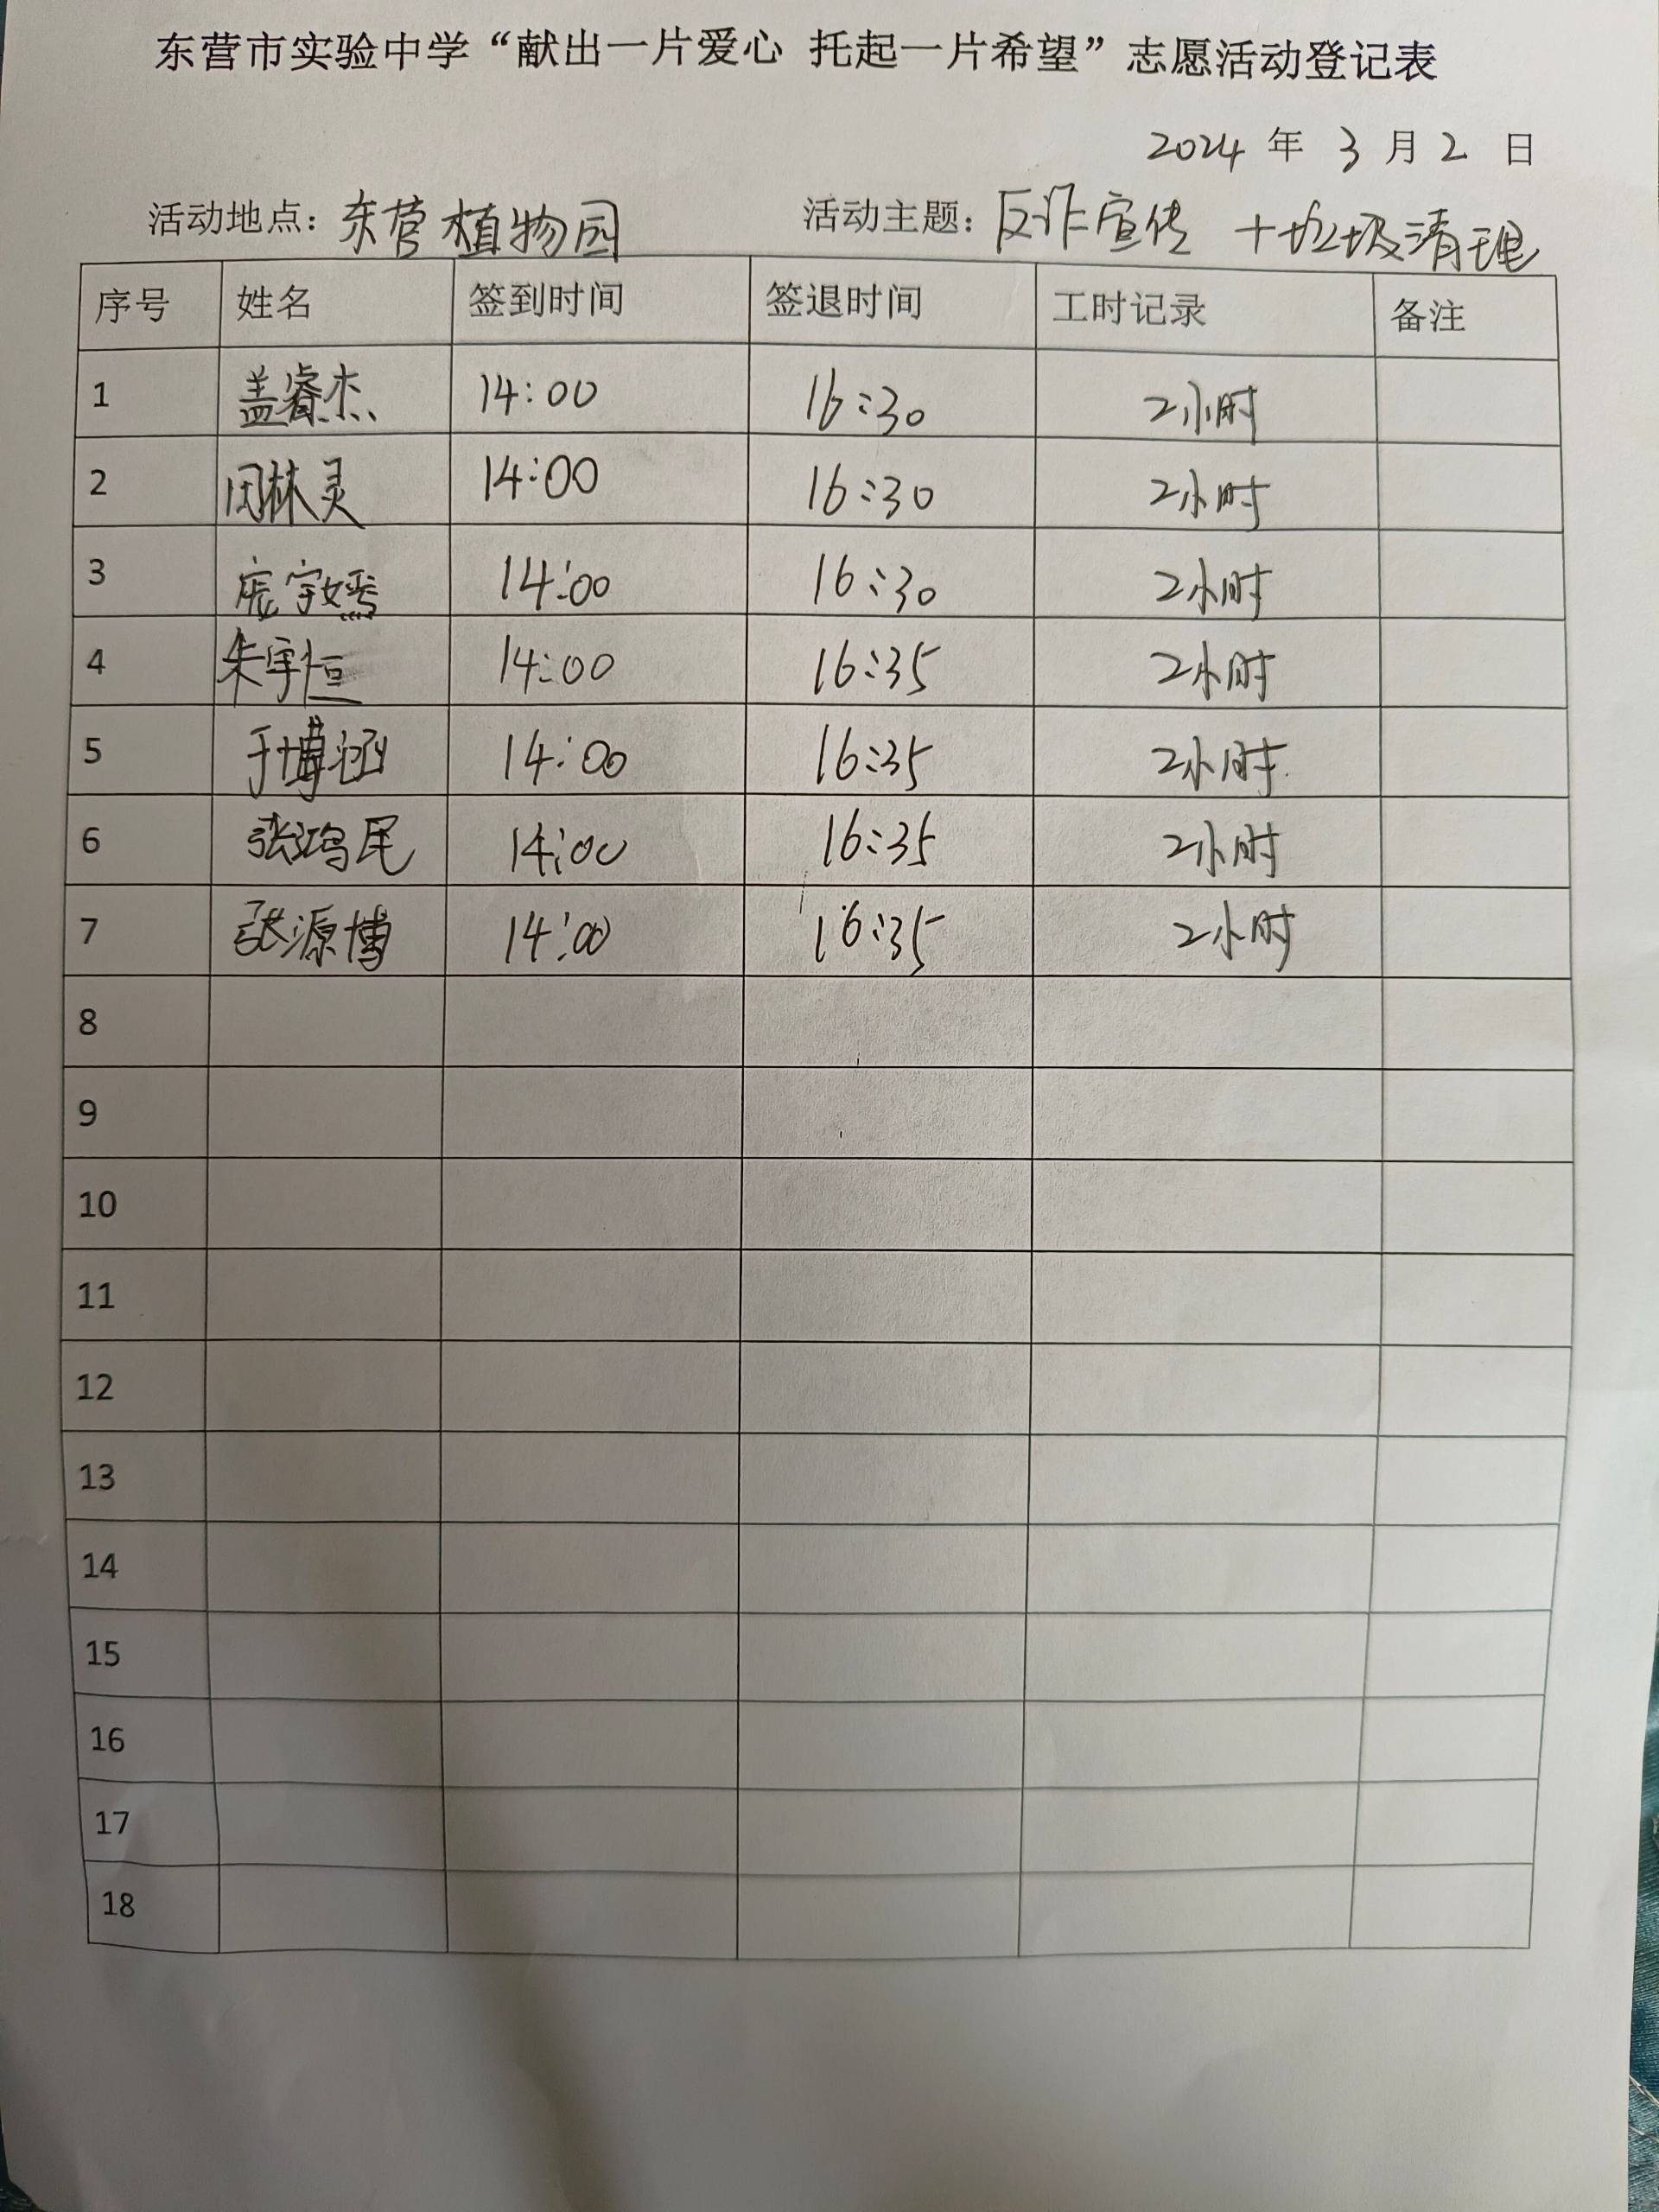 东营市实验中学“献出一片爱心 托起一片希望”志愿活动登记表
2024 年 3 月 2 日
活动地点：东营植物园 活动主题：反诈宣传 十垃圾清理
序号 姓名 签到时间 签退时间 工时记录 备注
1 盖睿杰 14:00 16:30 2小时
2 闵林灵 14:00 16:30 2小时
3 庞宇嫣 14:00 16:30 2小时
4 朱宇恒 14:00 16:35 2小时
5 于博涵 14:00 16:35 2小时
6 张鸿 14:00 16:35 2小时
7 张源博 14:00 16:35 2小时
8
9
10
11
12
13
14
15
16
17
18